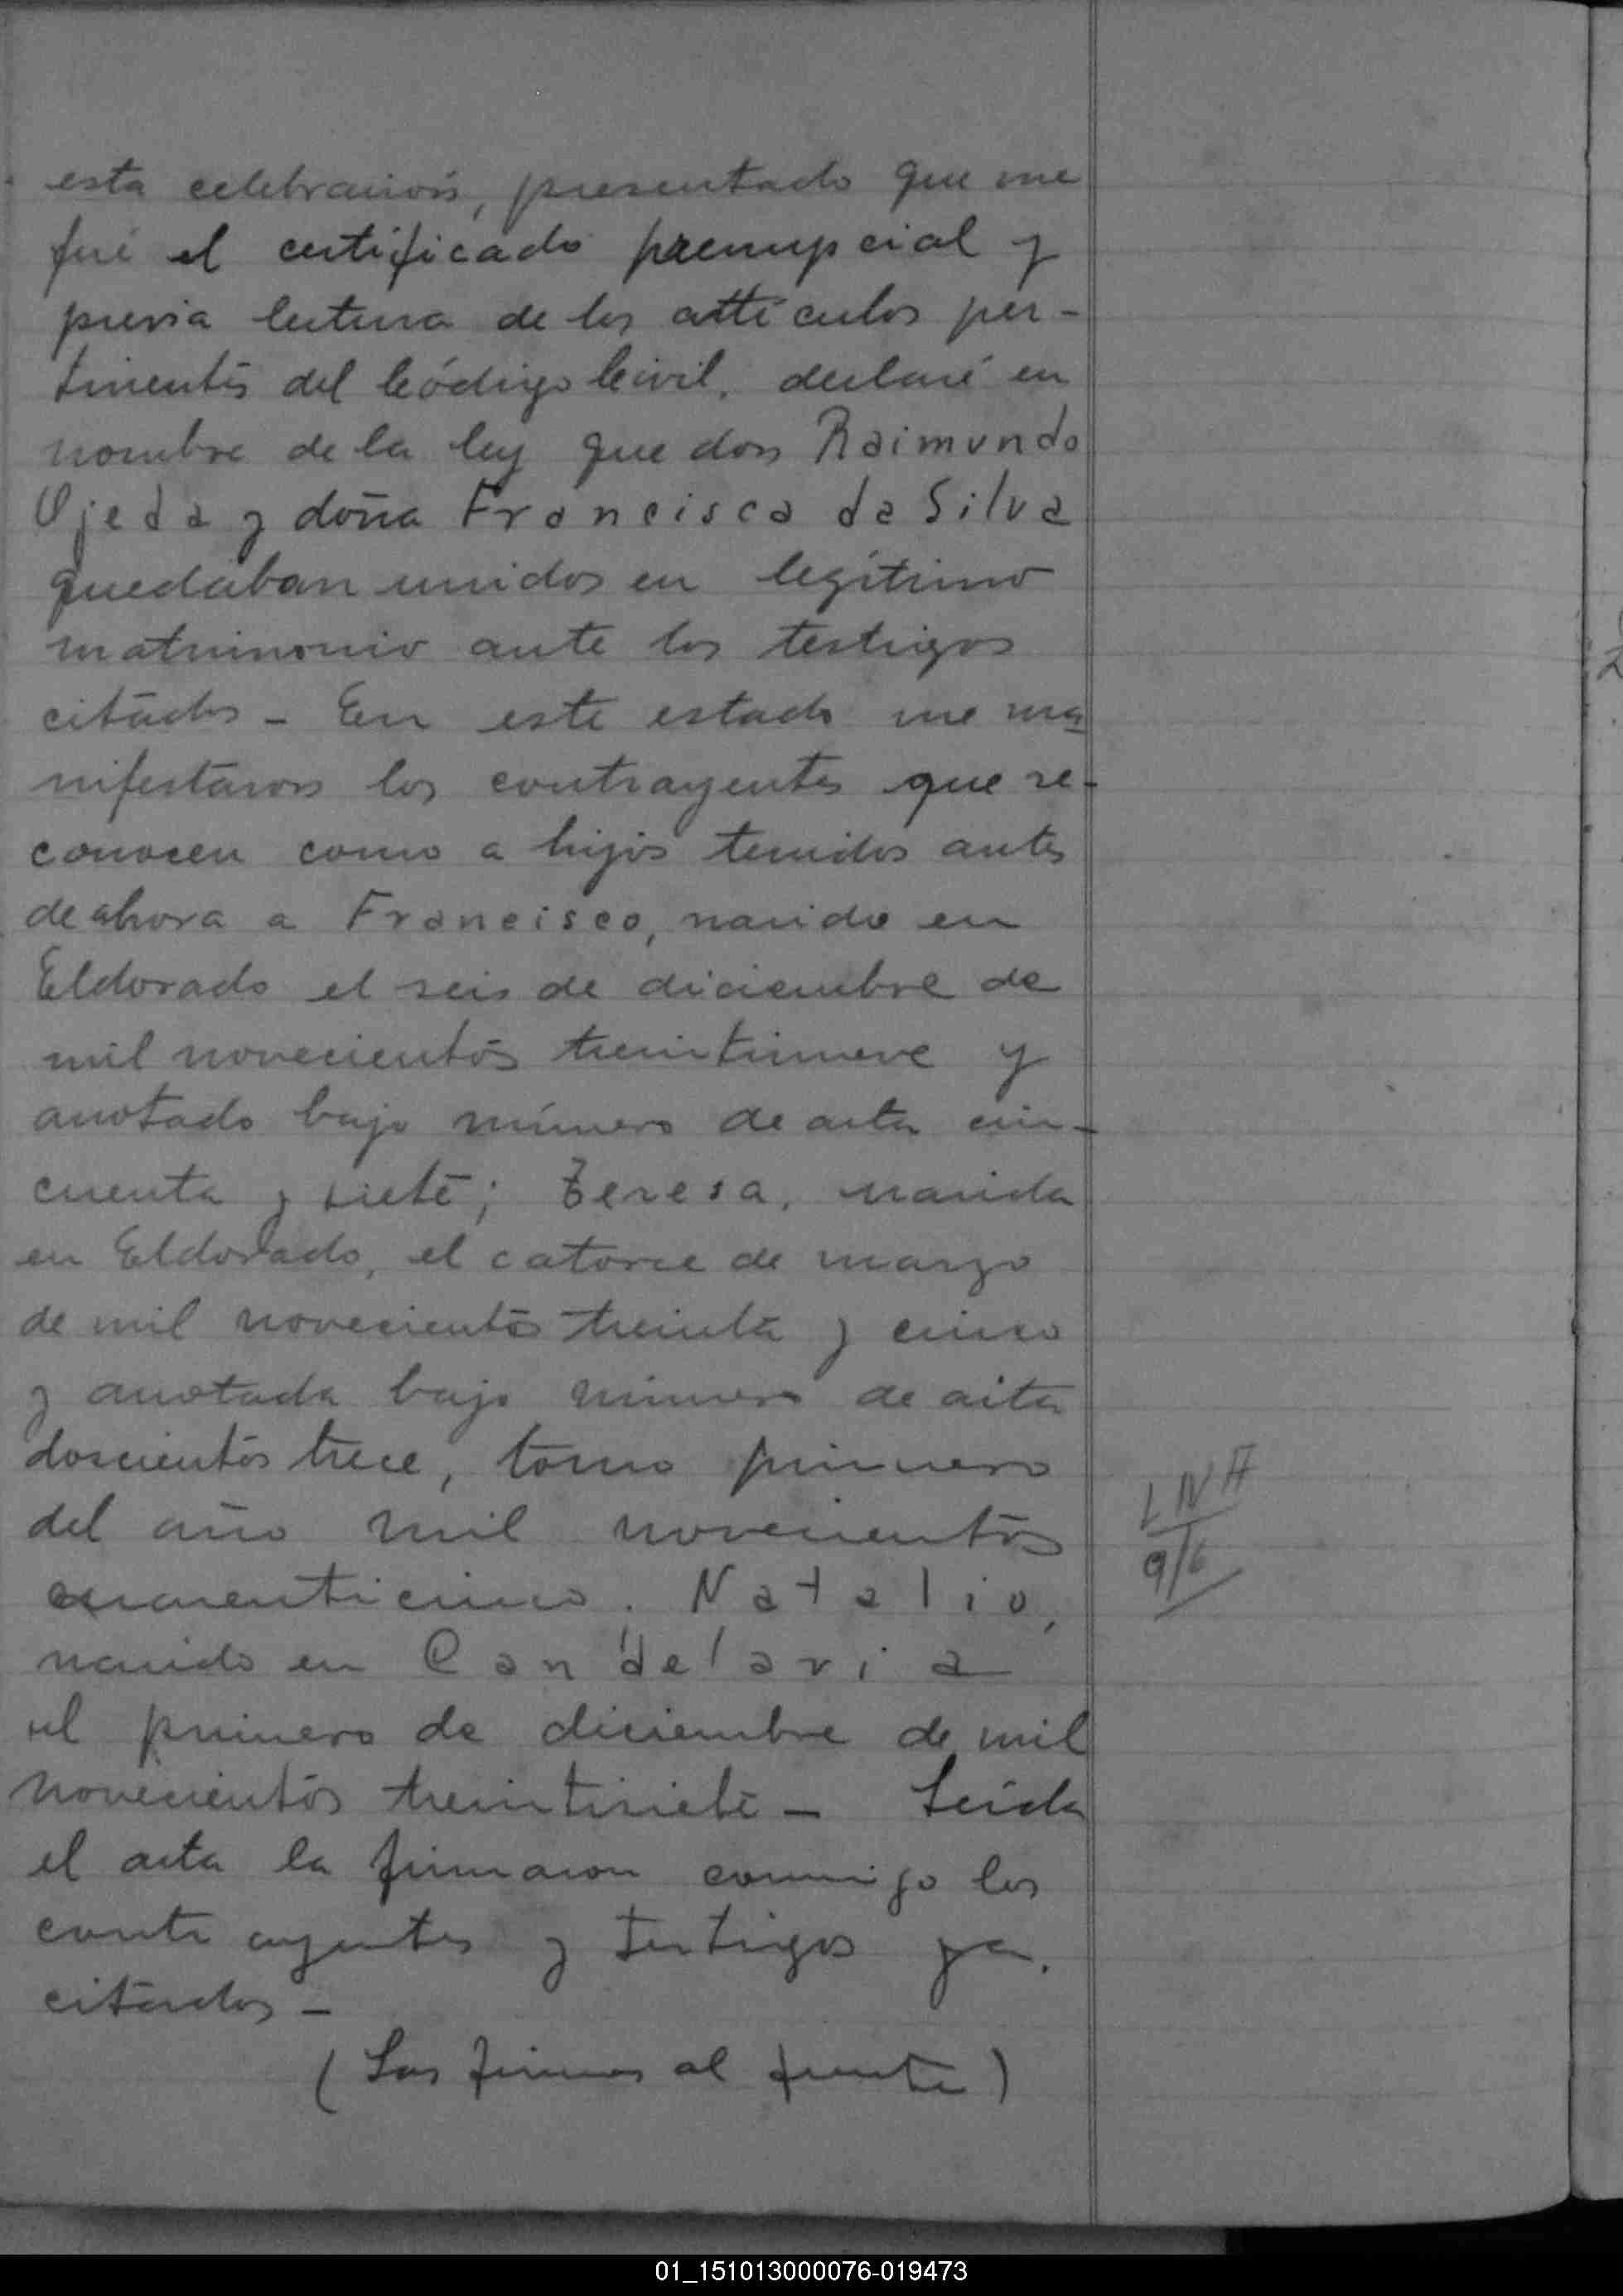 esta celebración, presentado que me
fué el certificado prenupcial y
previa lectura de los artículos per-
tinentes del Código Civil, declaré en
nombre de la ley que don Raimundo
Ojeda y doña Francisca da Silva
quedaban unidos en legítimo
matrimonio ante los testigos
citados - En este estado me ma
nifestaron los contrayentes que re-
conocen como a hijos tenidos antes
de ahora a Francisco, nacido en
Eldorado el seis de diciembre de
mil novecientos treintinueve y
anotado bajo número de acta cin-
cuenta y siete; Teresa, nacida
en Eldorado, el catorce de marzo
de mil novecientos treinta y cinco
y anotada bajo número de acta
doscientos trece, tomo primero
del año mil novecientos
cuarenticinco. Natalio,
nacido en Candelaria
el primero de diciembre de mil
novecientos treintisiete - Leída
el acta la firmaron conmigo los
contrayentes y testigos ya
citados -
(Las firmas al frente)
LNH
9/6
01_151013000076-019473